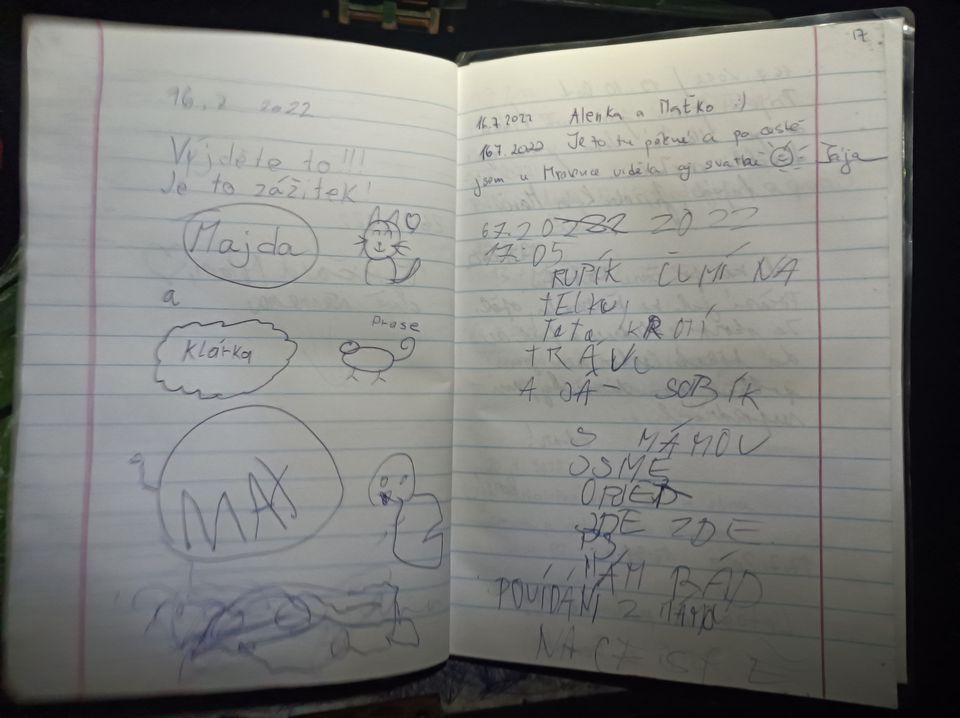 16. 7 2022
Vyjděte to!!!
Je to zážitek!
Majda
a
Klárka
prase
MAX
17
16.7.2022 Alenka a Maťko :)
16.7.2022 Je to tu pěkné a po cestě
jsem u Mravence viděla aj svatbu Tája
67.20222 2022
17:05
RUPÍK ČUMÍ NA
tELKU,
Tata KROTÍ
tRÁVU
A JÁ- SOBÍK
S MÁMOU
JSME
OBJED
JDE ZDE
PS
MÁM RÁD
POVÍDÁNÍ Z MÁMOU
NA